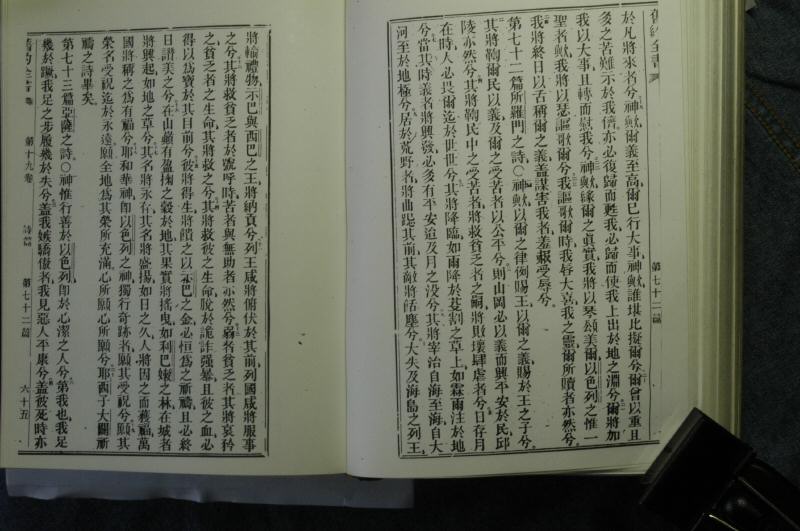 舊約全書
第七十二篇
於凡將來者兮神歟爾義至高爾已行大事神歟誰堪比擬爾兮爾曾以重且
多之苦難示於我儕亦必復歸而甦我必歸而使我上出於地之淵兮爾將加
我以大事且轉而慰我兮神歟緣爾之眞實我將以琴頌美爾以色列之惟一
聖者歟我將以瑟謳歌爾兮我謳歌爾時我脣大喜我之靈爾所贖者亦然兮
我將終日以舌稱爾之義蓋謀害我者羞赧受辱兮
第七十二篇所羅門之詩○神歟以爾之律例賜王以爾之義賜於王之子兮
其將鞫爾民以義及爾之受苦者以公平兮則山岡必以義而興平安於民邱
陵亦然兮其將鞫民中之受苦者將救貧乏者之嗣將敗壞肆虐者兮日存月
在時人必畏爾迄於世世兮其將降臨如雨降於芟割之草上如霖雨注於地
兮當其時義者將興發必多有平安迨及月之沒兮其將宰治自海至海自大
河至於地極兮居於荒野者將曲跽其前其敵將餂塵兮大失及海島之列王
將輸禮物示巴與西巴之王將納貢兮列王咸將俯伏於其前列國咸將服事
之兮其將救貧乏者於號呼時苦者與無助者亦然兮弱者貧乏者其將哀矜
之貧乏者之生命其將救之兮其將救彼之生命脫於詭詐强暴且彼之血必
得以爲寶於其目前兮彼將得生將饋之以示巴之金必恒爲之祈禱且必終
日讚美之兮在山巔有盈掬之穀於地其果實將搖曳如利巴嫩之林在城者
將興起如地之草兮其名將永存其名將盛揚如日之久人將因之而獲福萬
國將稱之爲有福兮耶和華神卽以色列之神獨行奇跡者願其受祝兮願其
榮名受祝迄於永遠願全地爲其榮所充滿心所願心所願兮耶西子大闢祈
禱之詩畢矣
第七十三篇亞薩之詩○神惟行善於以色列卽於心潔之人兮第我也我足
幾於蹶我足之步履幾於失兮蓋我嫉驕傲者我見惡人平康兮蓋彼死時亦
舊約全書 第十九卷 詩篇 第七十二篇 六十五